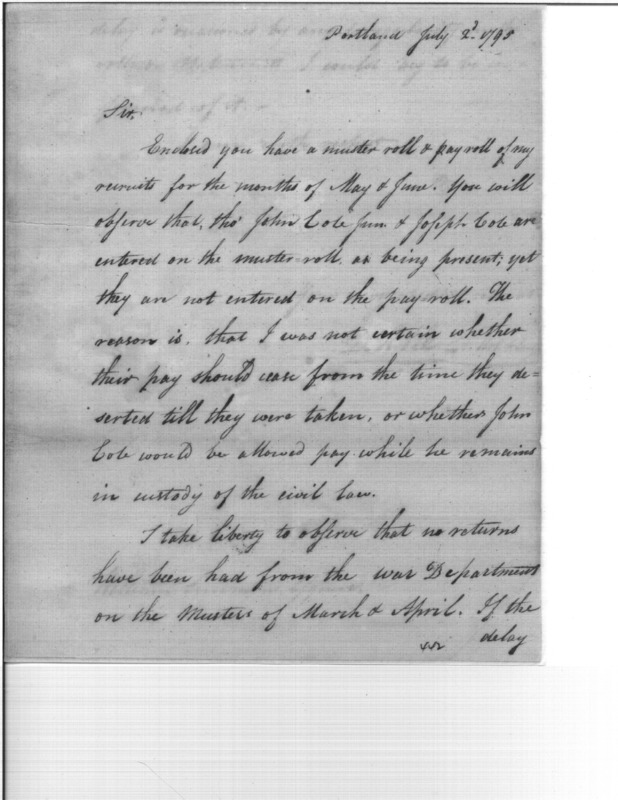 Portland July 2d. 1795
Sir,
Enclosed you have a muster roll & pay roll of my
recruits for the months of May & June. You will
observe that, tho' John Cole Jun. & Joseph Cole are
entered on the muster-roll, as being present; yet
they are not entered on the pay roll. The
reason is, that I was not certain whether
their pay should cease from the time they de=
serted till they were taken, or whether John
Cole would be allowed pay while he remains
in custody of the civil law.
I take liberty to observe that no returns
have been had from the war Department
on the Musters of March & April. If the
delay